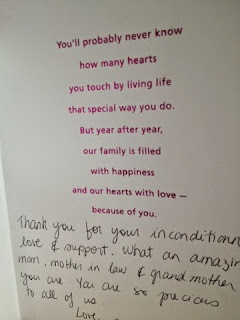 You'll probably never know
how many hearts
you touch by living life
that special way you do.
But year after year,
our family is filled
with happiness
and our hearts with love —
because of you.
Thank you for your inconditionn
love & support. What an amazin
mom, mother in law & grandmother
you are. You are so precious
to all of us.
Love,